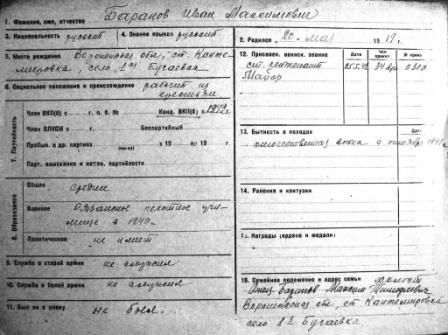 1. Фамилия, имя, отчество Баранов Иван Максимович
3. Национальность русский 4. Знание языков русский
5. Место рождения Воронежская обл, ст. Канте-
мировка, село 1ая Бугаевка
6. Социальное положение и происхождение рабочий из
крестьян
7. Партийность
Член ВКП(б) с г. п. б. № Канд. ВКП(б) с
Член ВЛКСМ с Беспартийный
Пребыв. в др. партиях с 19 по 19 г.
Парт. взыскания и мотив. партийности
8. Образование
Общее среднее
Военное Рязанское пехотное учи-
лище в 1940г.
Политическое не имеет
9. Служба в старой армии не служил
10. Служба в белой армии не служил
11. Был ли в плену не был
2. Родился 20 мая 19 г.
12. Присвоен. воинск. звания
ст. лейтенант
Майор
13. Бытность в походах
отечественная война с октября 1941г.
14. Ранения и контузии
15. Награды (ордена и медали)
16. Семейное положение и адрес семьи холост
Отец Баранов Максим
Воронежская обл, ст Кантемировка
село Бугаевка